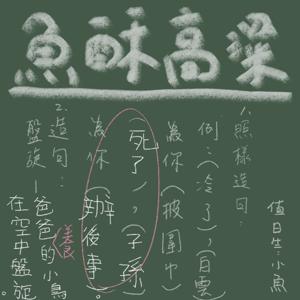 魚酥高粱
值日生:小魚
1.照樣造句:
例:(冷了),(白雲)
為你(披圍巾)
(死了),(子孫)
為你(辦後事)。
2.造句:
盤旋-爸爸養的小鳥
在空中盤旋。